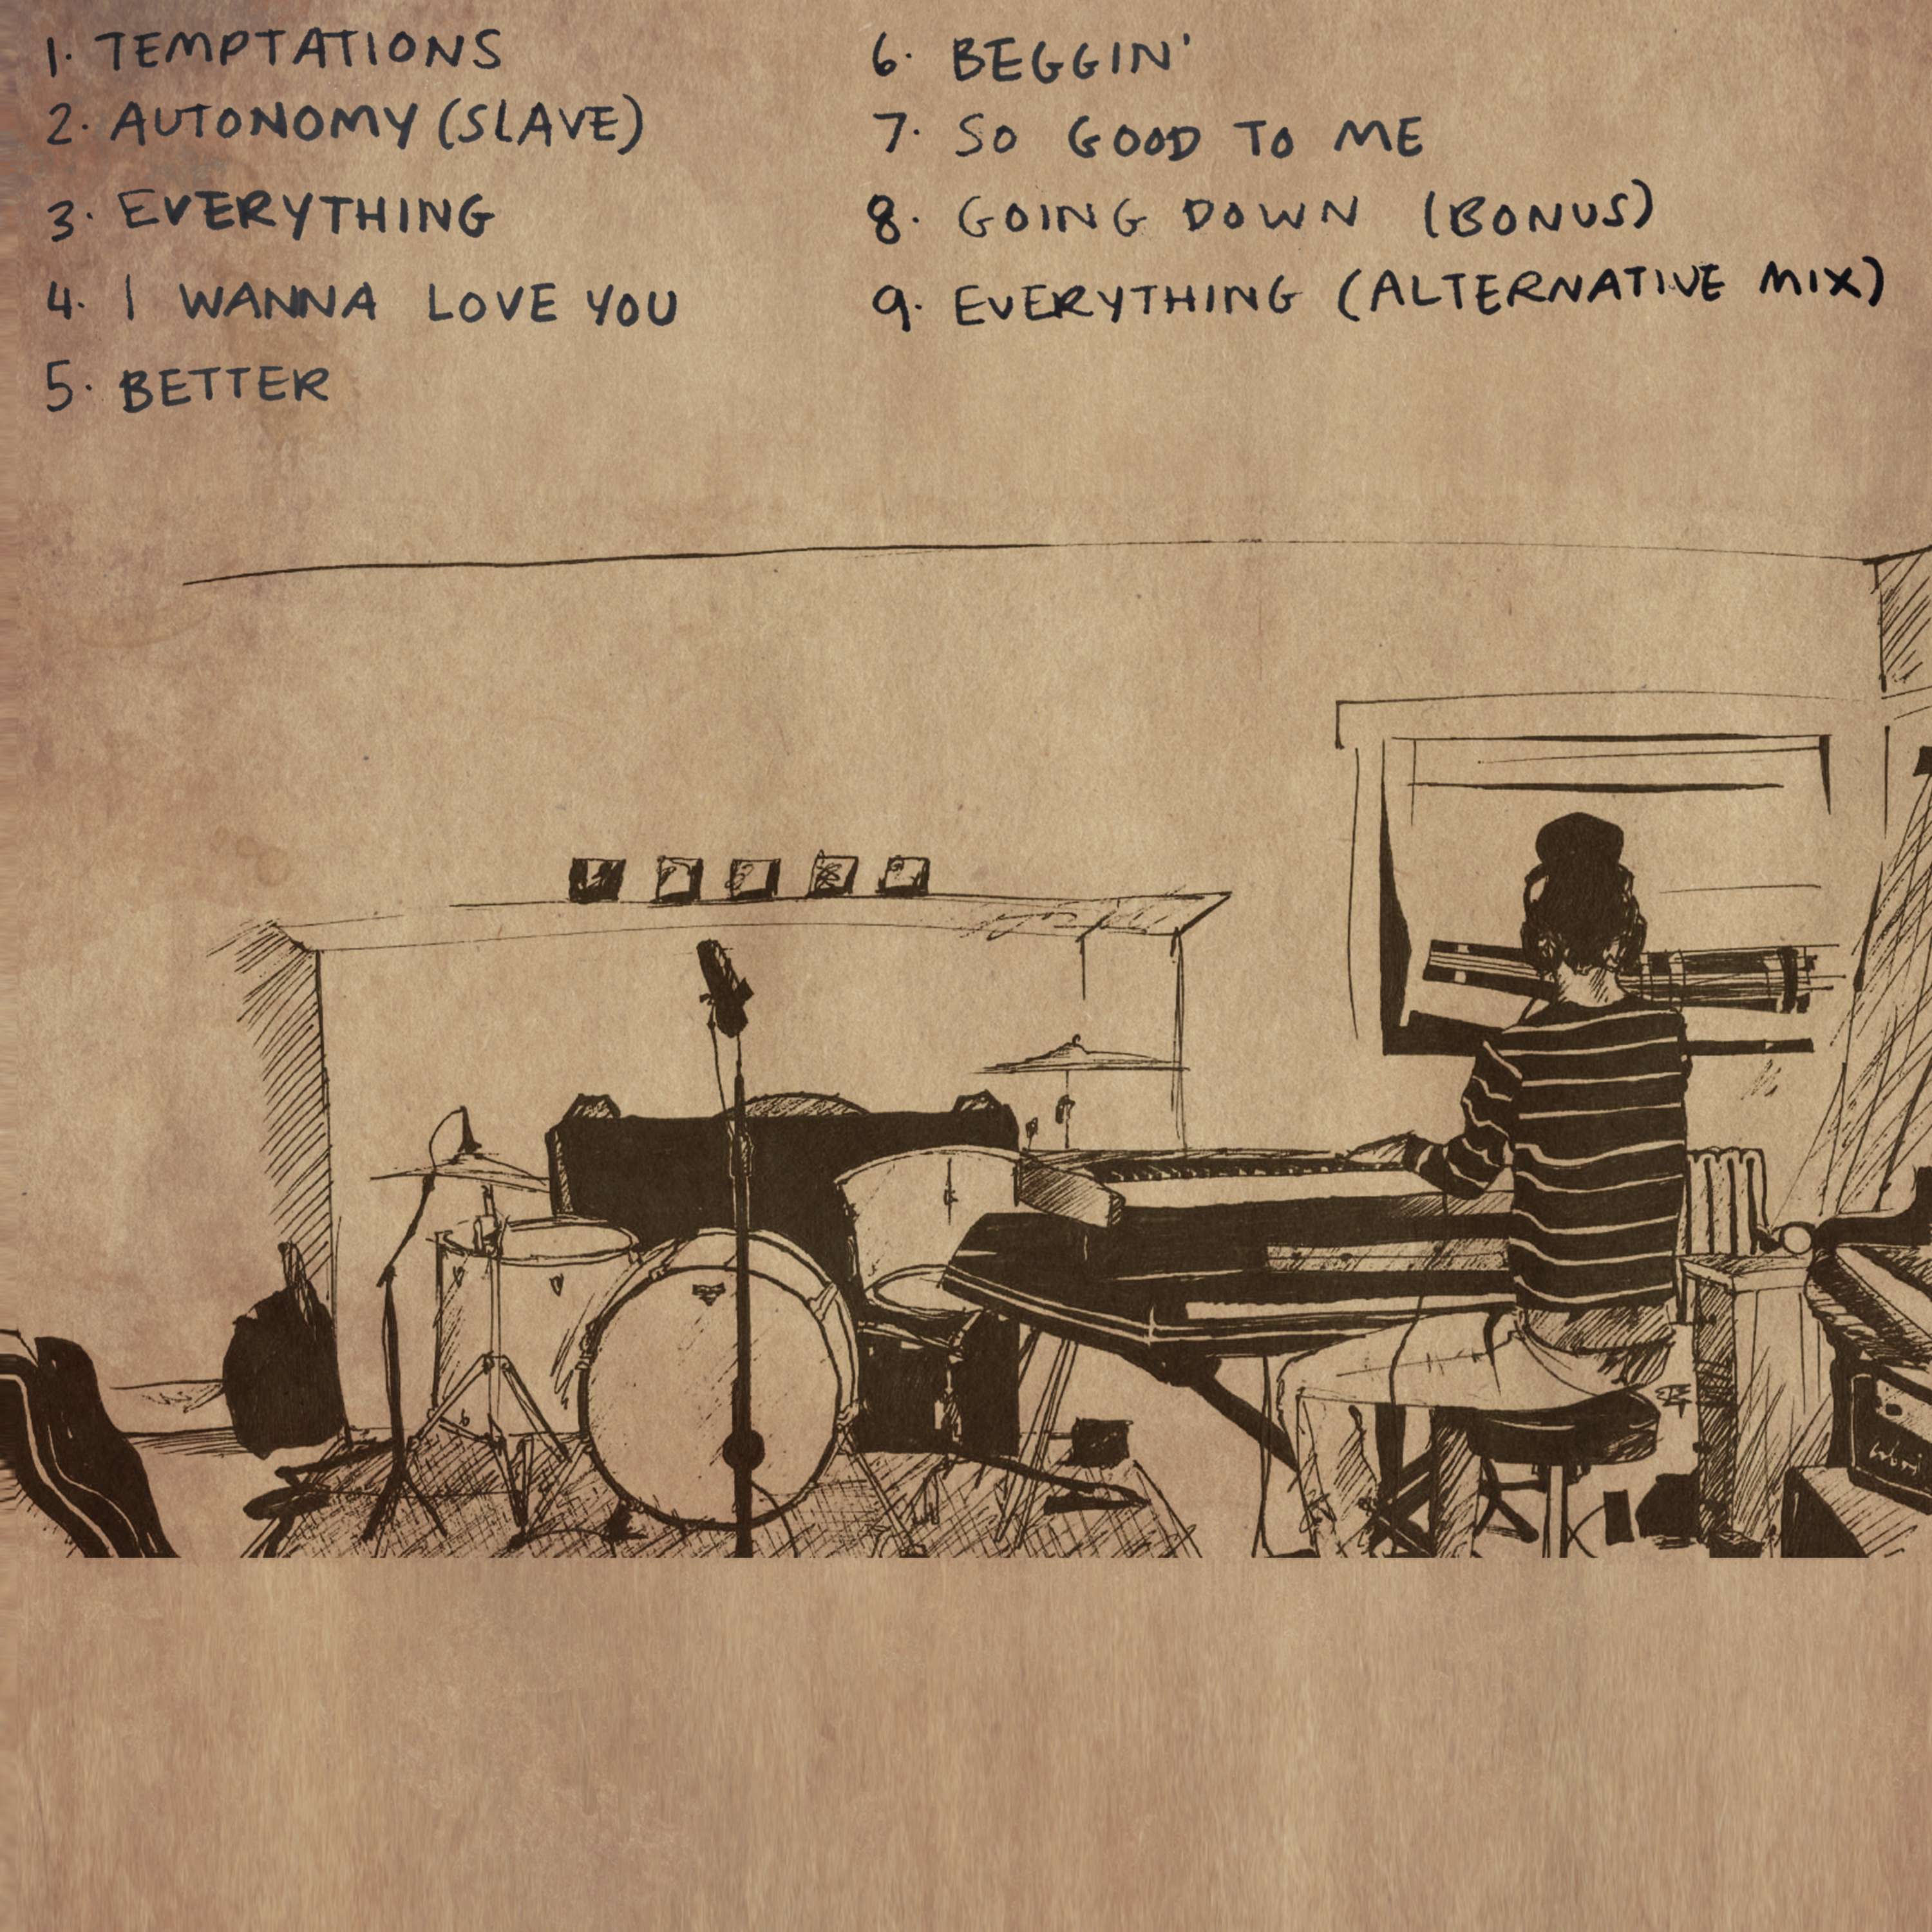 1. TEMPTATIONS
2. AUTONOMY (SLAVE)
3. EVERYTHING
4. I WANNA LOVE YOU
5. BETTER
6. BEGGIN'
7. SO GOOD TO ME
8. GOING DOWN (BONUS)
9. EVERYTHING (ALTERNATIVE MIX)